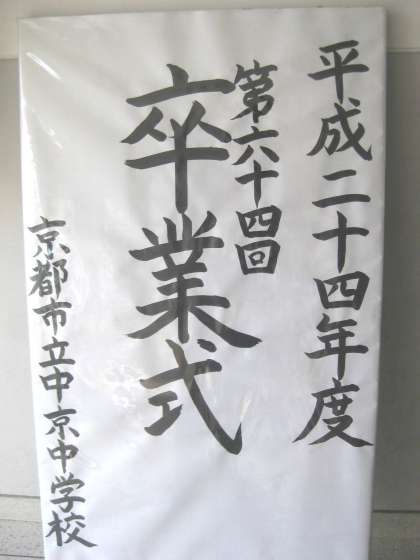 平成二十四年度
第六十四回
卒業式
京都市立中京中学校